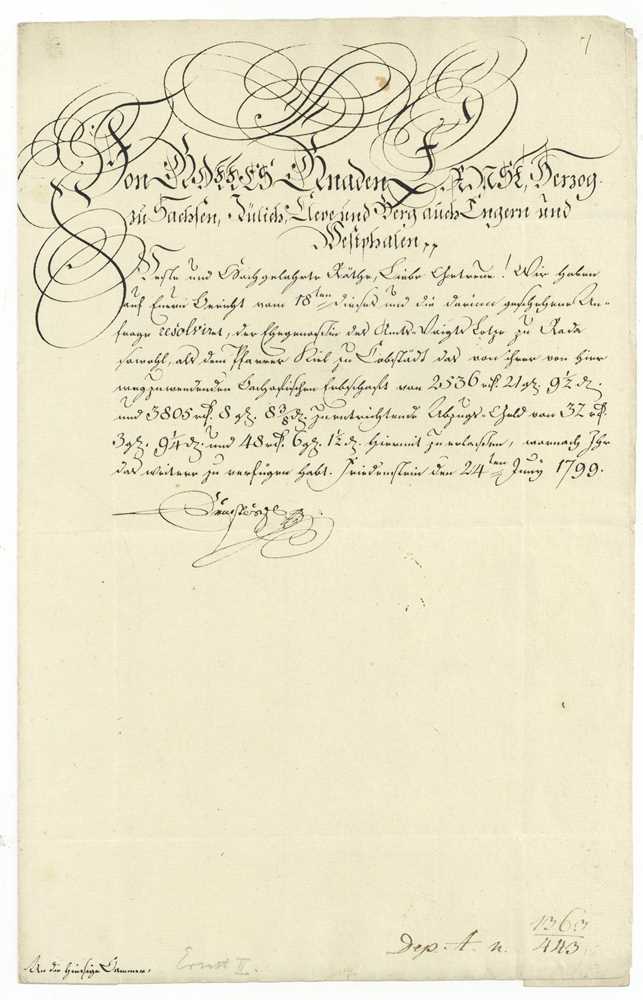 Von GOTTES Gnaden ERNST, Herzog
zu Sachsen, Jülich, Cleve und Berg auch Engern und
Westphalen
Veste und Hochgelahrte Räthe, Liebe Getreue! Wir haben
auf Euern Bericht vom 18ten dieses und die darinn geschehene An-
frage resolviret, der Ehegenoßin des Amts-Voigts Lotze zu Roda
sowohl, als dem Pfarrer Kiel zu Cobstädt das von ihrer von hier
wegzuwendenden Erbschaft von 2536 rth. 21 gl. 9½ d.
und 3805 rth. 8 gl. 8⅜ d. zu entrichtende Abzugs-Geld von 32 rth.
3 gl. 9¼ d. und 48 rth. 6 gl. 1½ d. hiermit zu erlaßen, wornach Ihr
das weitere zu verfügen habt. Friedenstein den 24ten Juny 1799.
An die hiesige Cammer.
Ernst II.
Dep. A. n. 1363
443